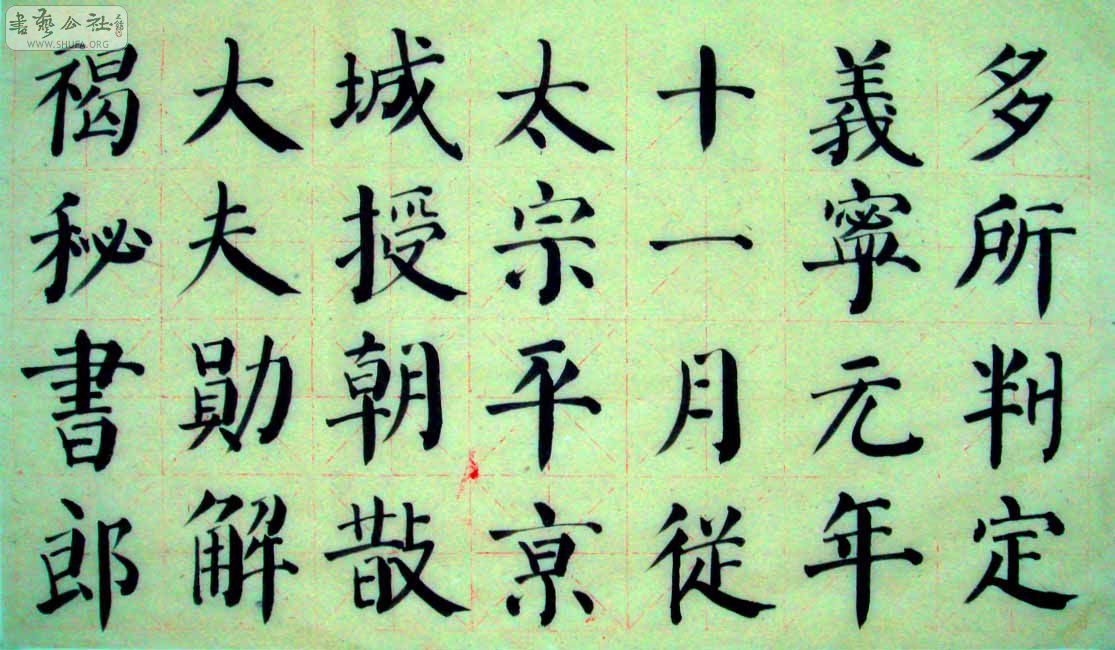 多所判定
義寧元年
十一月從
太宗平京
城授朝散
大夫勛解
褐秘書郎
書藝公社
WWW.SHUFA.ORG